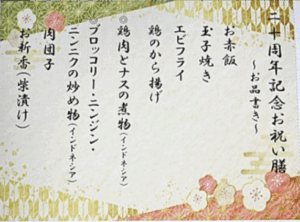 二十周年記念お祝い膳
～お品書き～
お赤飯
玉子焼き
エビフライ
鶏のから揚げ
◎鶏肉とナスの煮物(インドネシア)
◎ブロッコリー・ニンジン・
ニンニクの炒め物(インドネシア)
肉団子
お新香(柴漬け)